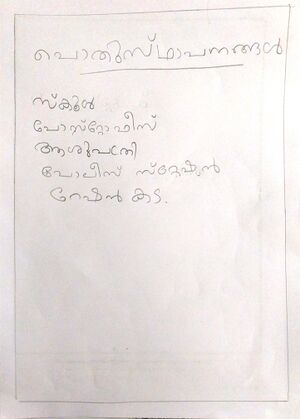 പൊതുസ്ഥാപനങ്ങൾ
സ്കൂൾ
പോസ്റ്റോഫീസ്
ആശുപത്രി
പോലീസ് സ്റ്റേഷൻ
റേഷൻ കട.